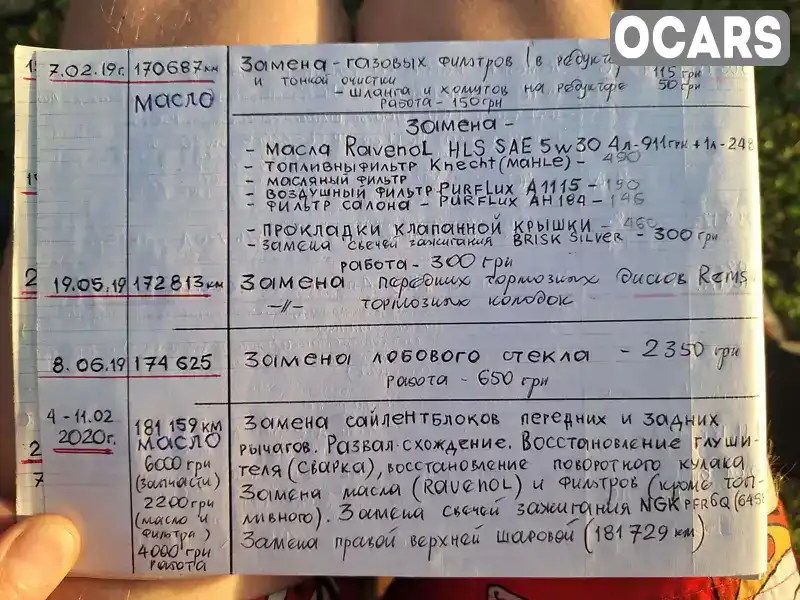 OCARS
7.02.19г. 170687км Замена - газовых фильтров (в
и тонкой очистки 115 грн
масло - шланга и хомутов на редукторе 50 грн
работа - 150 грн
Замена -
- масла Ravenol HLS SAE 5w30 4л-911грн + 1л-248
- топливныфильтр Knecht (Mahle) - 490
- масляный фильтр
- воздушный фильтр Purflux A1115 - 190
- фильтр салона - Purflux AH184 - 146
- прокладки клапанной крышки - 460
- замена свечей зажигания Brisk Silver - 300 грн
работа - 300 грн
19.05.19 172813км Замена передних тормозных дисков
-//- тормозных колодок
8.06.19 174 625 Замена лобового стекла - 2350 грн
работа - 650 грн
4-11.02 2020г.
181 159 км
масло
6000 грн
(запчасти)
2200 грн
(масло и
фильтра)
4000 грн
работа
Замена сайлентблоков передних и задних
рычагов. Развал-схождение. Восстановление глуши-
теля (сварка), восстановление поворотного кулака
Замена масла (Ravenol) и фильтров (кроме топ-
ливного). Замена свечей зажигания NGK PFR6Q
Замена правой верхней шаровой (181 729 км)